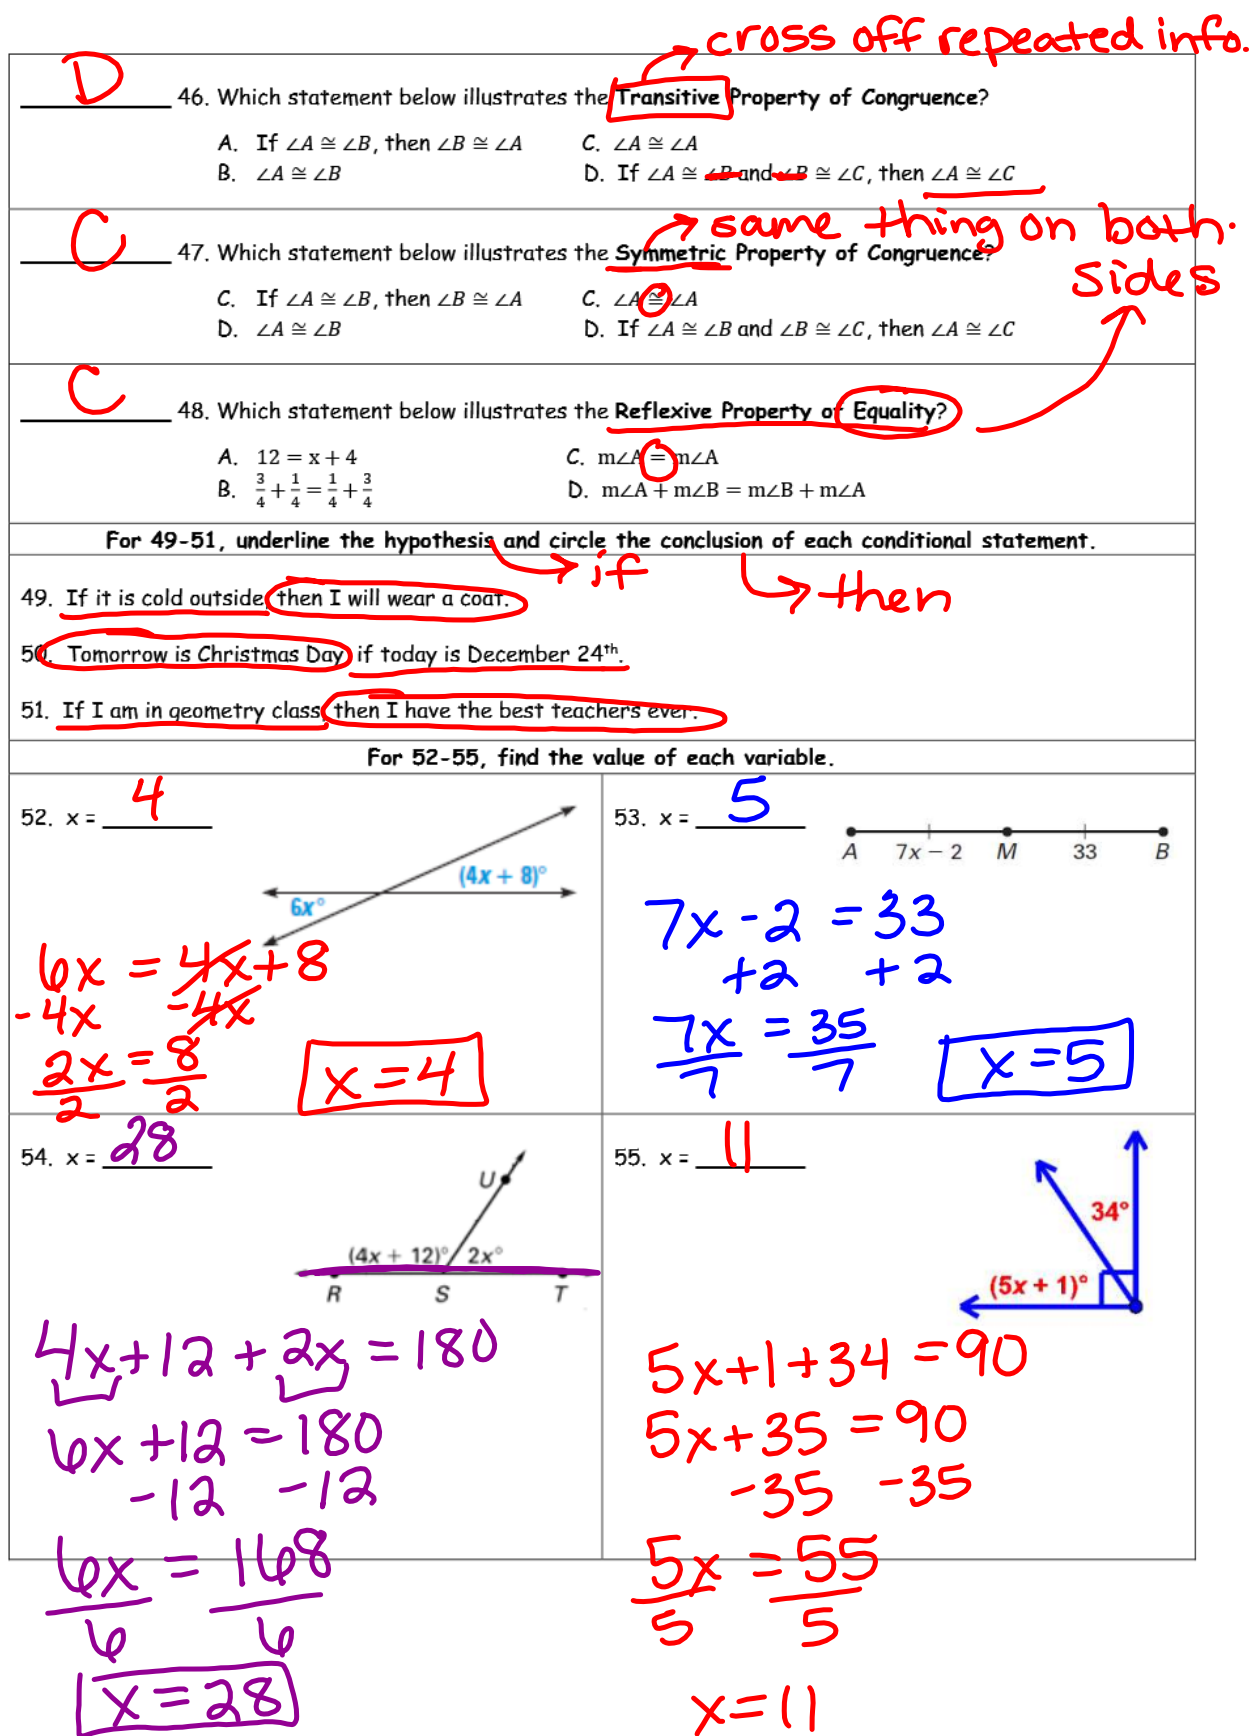 cross off repeated info.
D 46. Which statement below illustrates the Transitive Property of Congruence?
A. If ∠A ≅ ∠B, then ∠B ≅ ∠A C. ∠A ≅ ∠A
B. ∠A ≅ ∠B D. If ∠A ≅ ∠B and ∠B ≅ ∠C, then ∠A ≅ ∠C
same thing on both
sides
C 47. Which statement below illustrates the Symmetric Property of Congruence?
C. If ∠A ≅ ∠B, then ∠B ≅ ∠A C. ∠A ≅ ∠A
D. ∠A ≅ ∠B D. If ∠A ≅ ∠B and ∠B ≅ ∠C, then ∠A ≅ ∠C
C 48. Which statement below illustrates the Reflexive Property of Equality?
A. 12 = x + 4 C. m∠A = m∠A
B. 3/4 + 1/4 = 1/4 + 3/4 D. m∠A + m∠B = m∠B + m∠A
For 49-51, underline the hypothesis and circle the conclusion of each conditional statement.
if
then
49. If it is cold outside, then I will wear a coat.
50. Tomorrow is Christmas Day if today is December 24th.
51. If I am in geometry class, then I have the best teachers ever.
For 52-55, find the value of each variable.
52. x = 4
(4x + 8)°
6x°
6x = 4x + 8
-4x -4x
2x = 8
2 2
x = 4
53. x = 5
A 7x − 2 M 33 B
7x - 2 = 33
+2 +2
7x = 35
7 7
x = 5
54. x = 28
U
(4x + 12)° 2x°
R S T
4x + 12 + 2x = 180
6x + 12 = 180
-12 -12
6x = 168
6 6
x = 28
55. x = 11
34°
(5x + 1)°
5x + 1 + 34 = 90
5x + 35 = 90
-35 -35
5x = 55
5 5
x = 11